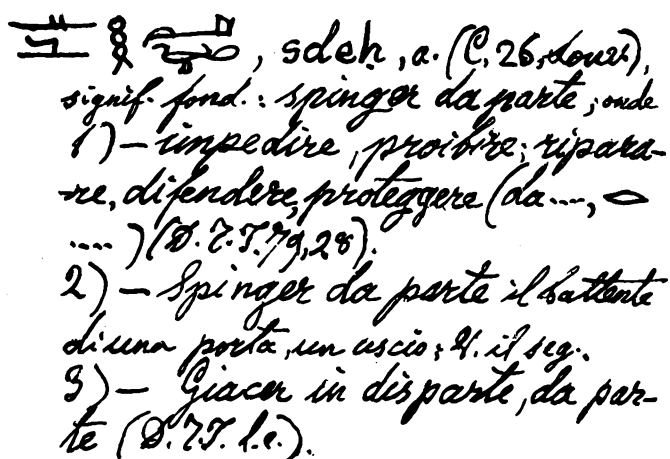 , sdeh, a. (C, 26, Louv.),
signif. fond.: spinger da parte; onde
1) — impedire, proibire; ripara-
-re, difendere, proteggere (da...,
....) (D. T. J. 79, 28).
2) — Spinger da parte il battente
di una porta, un uscio; V. il seg.
3) — Giacer in disparte, da par-
te (D. T. J. l. c.).